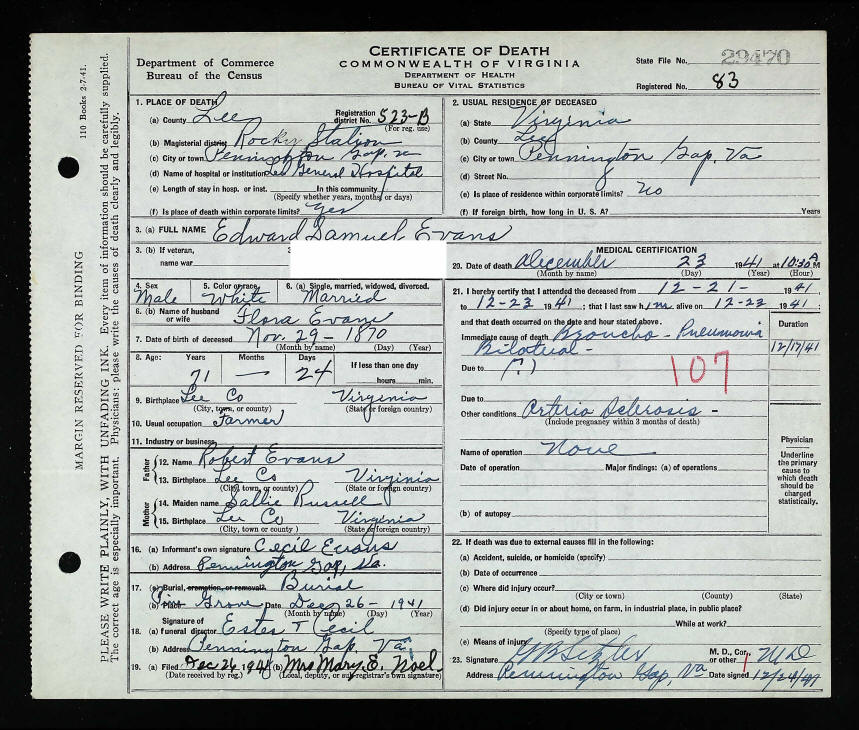 CERTIFICATE OF DEATH
COMMONWEALTH OF VIRGINIA
DEPARTMENT OF HEALTH
BUREAU OF VITAL STATISTICS
Department of Commerce
Bureau of the Census
State File No. 29470
Registered No. 83
110 Books 2-7-41.
MARGIN RESERVED FOR BINDING
PLEASE WRITE PLAINLY, WITH UNFADING INK. Every item of information should be carefully supplied.
The correct age is especially important. Physicians: please write the causes of death clearly and legibly.
1. PLACE OF DEATH
(a) County Lee Registration district No. 523-B
(For reg. use)
(b) Magisterial district Rocky Station
(c) City or town Pennington Gap, Va
(d) Name of hospital or institution Lee General Hospital
(e) Length of stay in hosp. or inst. In this community
(Specify whether years, months or days)
(f) Is place of death within corporate limits? Yes
2. USUAL RESIDENCE OF DECEASED
(a) State Virginia
(b) County Lee
(c) City or town Pennington Gap, Va
(d) Street No.
(e) Is place of residence within corporate limits? No
(f) If foreign birth, how long in U. S. A.? Years
3. (a) FULL NAME Edward Samuel Evans
3. (b) If veteran,
name war
3
4. Sex Male
5. Color or race White
6. (a) Single, married, widowed, divorced. Married
6. (b) Name of husband or wife Flora Evans
7. Date of birth of deceased Nov. 29 - 1870
(Month by name) (Day) (Year)
8. Age: Years 71 Months — Days 24 If less than one day
hours min.
9. Birthplace Lee Co Virginia
(City, town, or county) (State or foreign country)
10. Usual occupation Farmer
11. Industry or business
Father
12. Name Robert Evans
13. Birthplace Lee Co Virginia
(City, town, or county) (State or foreign country)
Mother
14. Maiden name Sallie Russell
15. Birthplace Lee Co Virginia
(City, town or county) (State or foreign country)
16. (a) Informant's own signature Cecil Evans
(b) Address Pennington Gap, Va.
17. (a) Burial, cremation, or removal? Burial
(b) Place Grove Date Dec 26 - 1941
(Month by name) (Day) (Year)
18. (a) Signature of funeral director Estes T Cecil
(b) Address Pennington Gap, Va.
19. (a) Filed Dec 26 1941 (b) Mrs Mary E. Noel
(Date received by reg.) (Local, deputy, or sub-registrar's own signature)
MEDICAL CERTIFICATION
20. Date of death December 23 1941 at 10:30 A M
(Month by name) (Day) (Year) (Hour)
21. I hereby certify that I attended the deceased from 12-21- 1941
to 12-23 1941; that I last saw him alive on 12-23 1941;
and that death occurred on the date and hour stated above.
Duration
Immediate cause of death Broncho-Pneumonia
Bilateral - 12/17/41
Due to (?)
107
Due to
Other conditions Arterio Sclerosis -
(Include pregnancy within 3 months of death)
Name of operation None
Date of operation. Major findings: (a) of operations
(b) of autopsy
Physician
Underline the primary cause to which death should be charged statistically.
22. If death was due to external causes fill in the following:
(a) Accident, suicide, or homicide (specify)
(b) Date of occurrence
(c) Where did injury occur?
(City or town) (County) (State)
(d) Did injury occur in or about home, on farm, in industrial place, in public place?
While at work?
(Specify type of place)
(e) Means of injury
23. Signature M. D., Cor. or other MD
Address Pennington Gap, Va Date signed 12/24/41